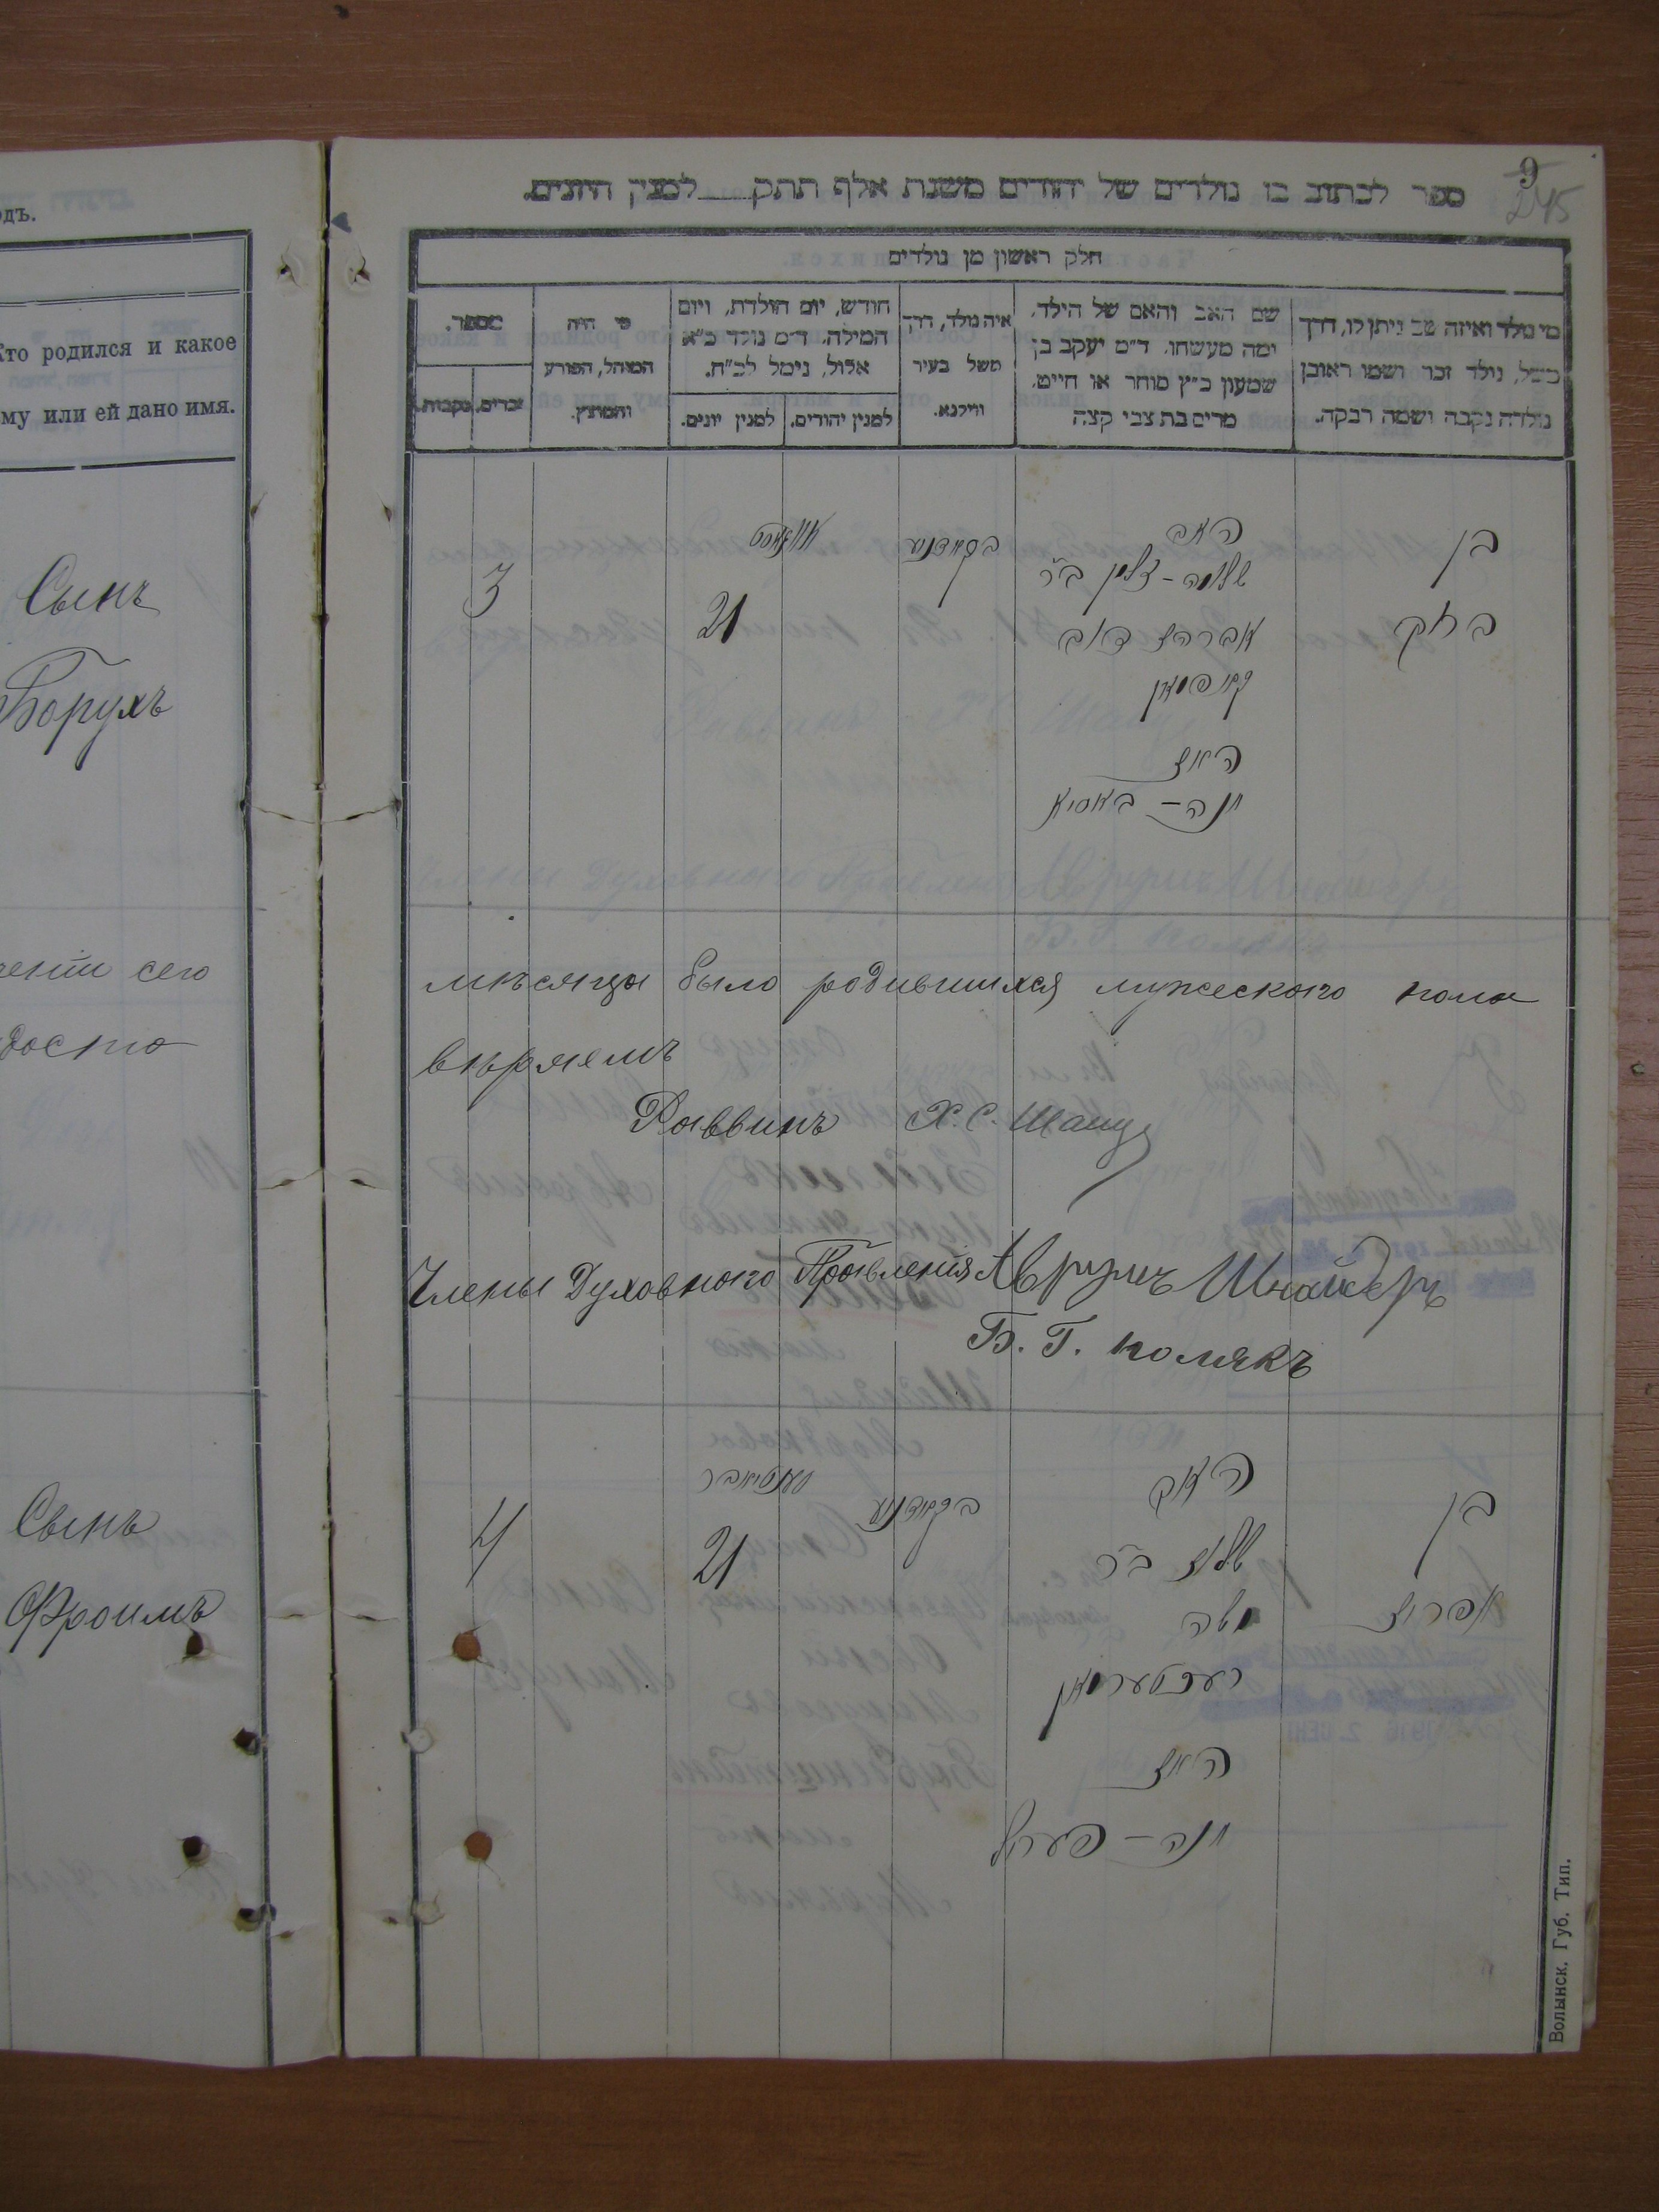 одъ.
Кто родился и какое
ему или ей дано имя.
Сынъ
Борухъ
сего
Сынъ
Фроимъ
9
245
ספר לכתוב בו נולדים של יהודים משנת אלף תתק___ למנין היונים.
חלק ראשון מן נולדים
מי נולד ואיזה שם ניתן לו, דרך
משל, נולד זכר ושמו ראובן
נולדה נקבה ושמה רבקה.
שם האב והאם של הילד,
ומה מעשהו. ד״מ יעקב בן
שמעון כ״ץ סוחר או חייט,
מרים בת צבי קצה
איה נולד, דרך
משל בעיר
ווילנא.
חודש, יום הולדת, ויום
המילה. ד״מ נולד כ״א
אלול, נימל לכ״ח.
למנין יהודים.
למנין יונים.
מי היה
המוהל, הפורע
והמוצץ.
מספר.
זכרים.
נקבות.
בן
האב
אויגוסט
3
שלמה-זלמן ב״ר
21
אברהם
האם
חנה - באסיא
мѣсяца было родившихся мужескаго пола
вѣряемъ
Раввинъ Х. С. Шацъ
Члены Духовнаго Правленія Аврумъ Шнайдеръ
Б. Г. Полякъ
בן
האב
סענטיאבר
4
21
שלום ב״ר
אפרים
משה
רעכטערמאן
האם
חנה - פערל
Волынск. Губ. Тип.